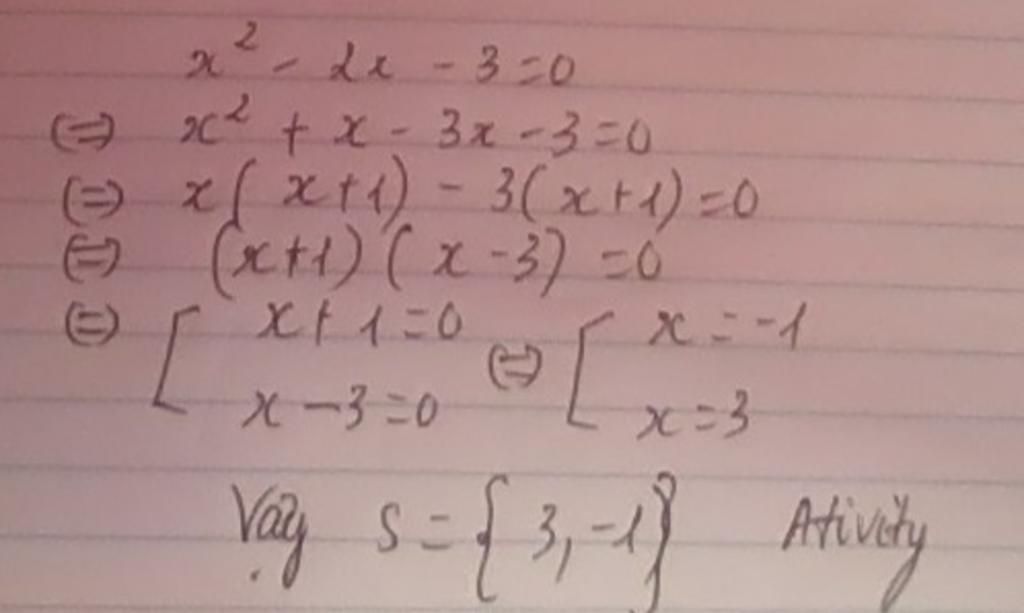 x² - 2x - 3 = 0
(=) x² + x - 3x - 3 = 0
(=) x( x+1) - 3( x+1) = 0
(=) (x+1) ( x - 3) = 0
(=) [ x + 1 = 0 (=) [ x = -1
x - 3 = 0 x = 3
Vậy S = { 3, -1} Ativity